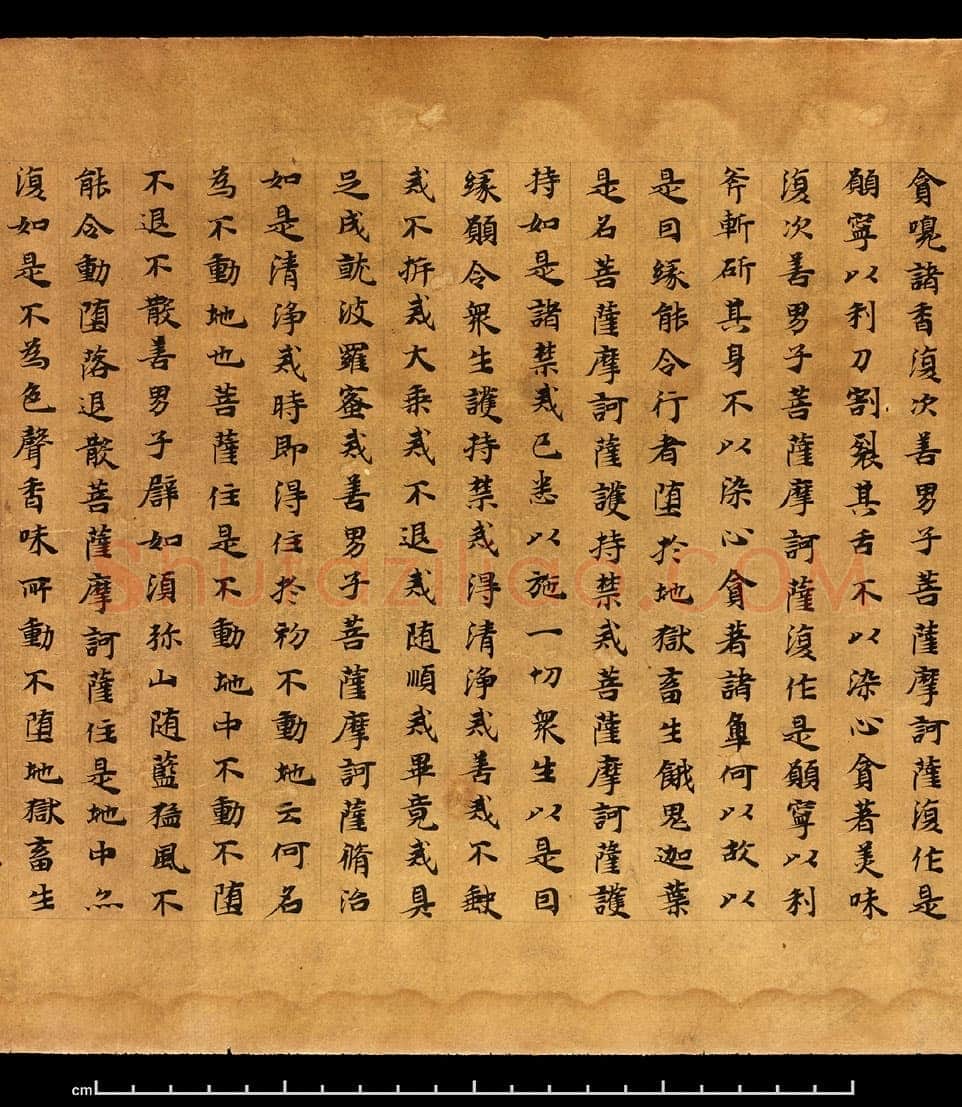 貪嗅諸香復次善男子菩薩摩訶薩復作是
願寧以利刀割裂其舌不以染心貪著美味
復次善男子菩薩摩訶薩復作是願寧以利
斧斬斫其身不以染心貪著諸𧢻何以故以
是因緣能令行者墮於地獄畜生餓鬼迦葉
是名菩薩摩訶薩護持禁戒菩薩摩訶薩護
持如是諸禁戒已悉以施一切眾生以是因
緣願令眾生護持禁戒得清淨戒善戒不缺
戒不㭊戒大乘戒不退戒随順戒畢竟戒具
足成就波羅蜜戒善男子菩薩摩訶薩脩治
如是清淨戒時即得住於初不動地云何名
為不動地也菩薩住是不動地中不動不墮
不退不散善男子辟如須弥山随藍猛風不
能令動墮落退散菩薩摩訶薩住是地中亦
復如是不為色聲香味所動不墮地獄畜生
Shufaziliao.COM
cm